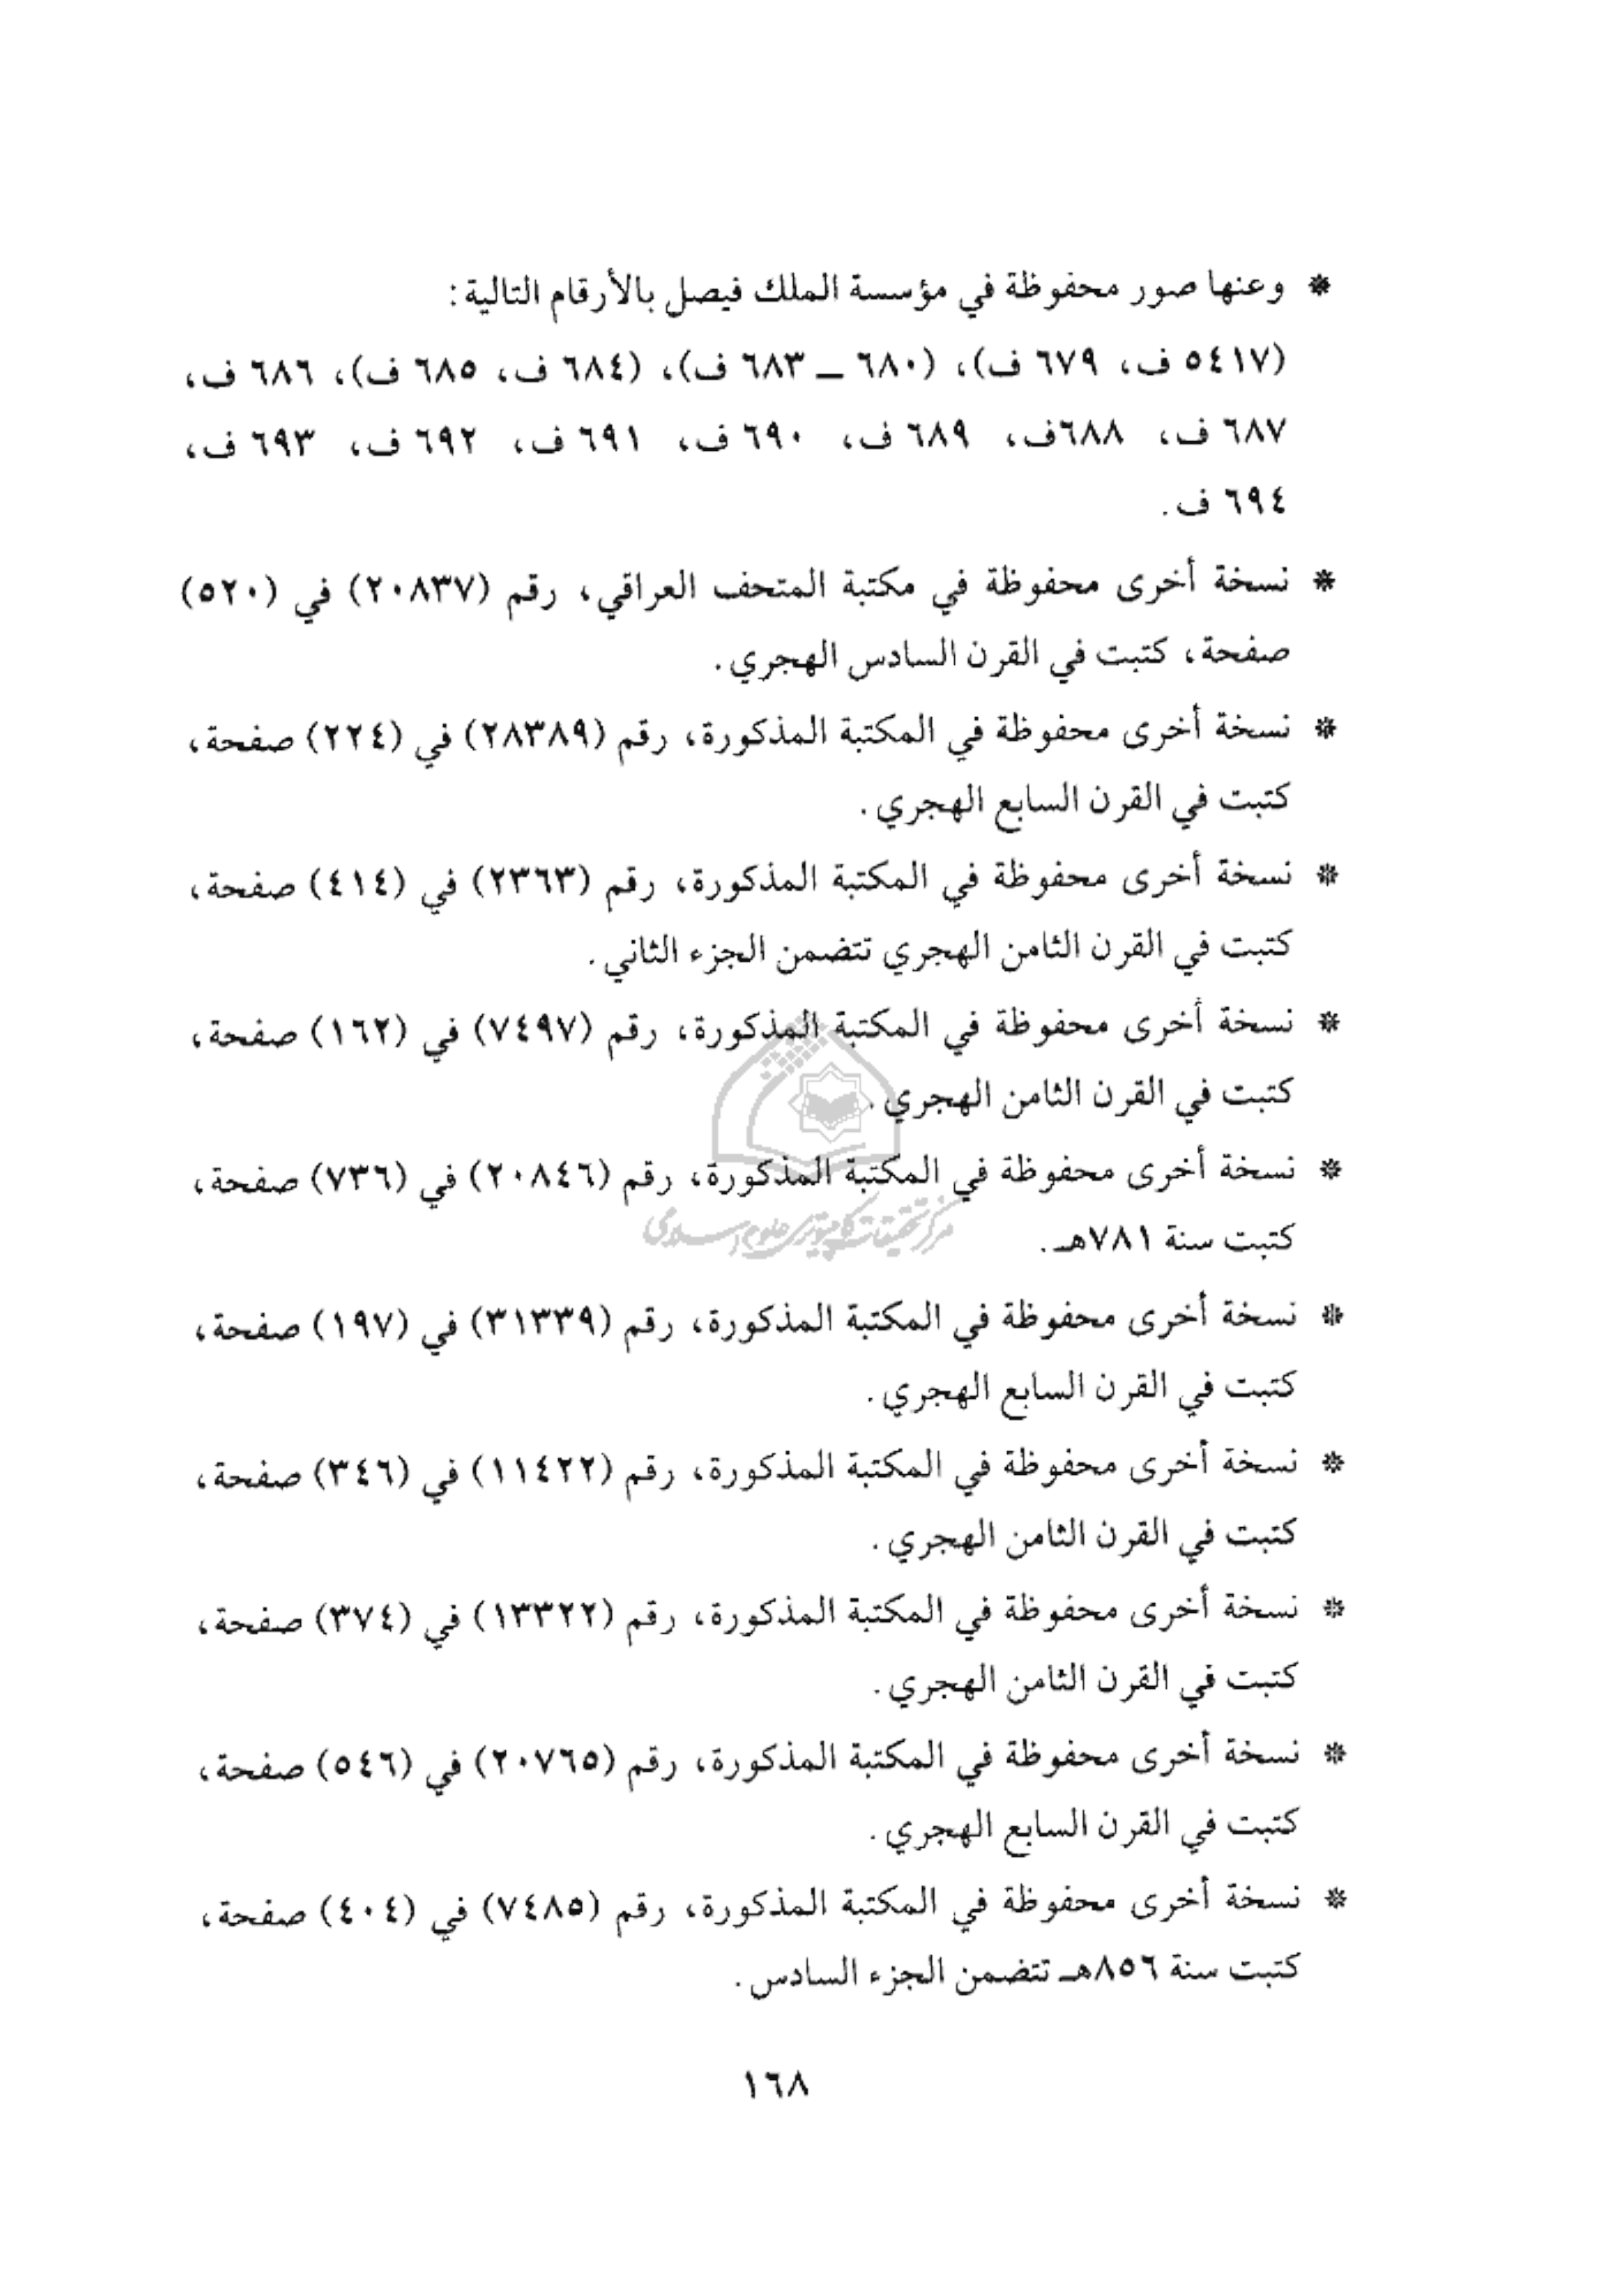 * وعنها صور محفوظة في مؤسسة الملك فيصل بالأرقام التالية:
(٥٤١٧ ف، ٦٧٩ ف)، (٦٨٠ ــ ٦٨٣ ف)، (٦٨٤ ف، ٦٨٥ ف)، ٦٨٦ ف،
٦٨٧ ف، ٦٨٨ف، ٦٨٩ ف، ٦٩٠ ف، ٦٩١ ف، ٦٩٢ ف، ٦٩٣ ف،
٦٩٤ ف.
* نسخة أخرى محفوظة في مكتبة المتحف العراقي، رقم (٢٠٨٣٧) في (٥٢٠)
صفحة، كتبت في القرن السادس الهجري.
* نسخة أخرى محفوظة في المكتبة المذكورة، رقم (٢٨٣٨٩) في (٢٢٤) صفحة،
كتبت في القرن السابع الهجري.
* نسخة أخرى محفوظة في المكتبة المذكورة، رقم (٢٣٦٣) في (٤١٤) صفحة،
كتبت في القرن الثامن الهجري تتضمن الجزء الثاني.
* نسخة أخرى محفوظة في المكتبة المذكورة، رقم (٧٤٩٧) في (١٦٢) صفحة،
كتبت في القرن الثامن الهجري.
* نسخة أخرى محفوظة في المكتبة المذكورة، رقم (٢٠٨٤٦) في (٧٣٦) صفحة،
مركز تحقيقات كامپيوتری علوم اسلامی
كتبت سنة ٧٨١هـ.
* نسخة أخرى محفوظة في المكتبة المذكورة، رقم (٣١٣٣٩) في (١٩٧) صفحة،
كتبت في القرن السابع الهجري.
* نسخة أخرى محفوظة في المكتبة المذكورة، رقم (١١٤٢٢) في (٣٤٦) صفحة،
كتبت في القرن الثامن الهجري.
* نسخة أخرى محفوظة في المكتبة المذكورة، رقم (١٣٣٢٢) في (٣٧٤) صفحة،
كتبت في القرن الثامن الهجري.
* نسخة أخرى محفوظة في المكتبة المذكورة، رقم (٢٠٧٦٥) في (٥٤٦) صفحة،
كتبت في القرن السابع الهجري.
* نسخة أخرى محفوظة في المكتبة المذكورة، رقم (٧٤٨٥) في (٤٠٤) صفحة،
كتبت سنة ٨٥٦هـ تتضمن الجزء السادس.
١٦٨